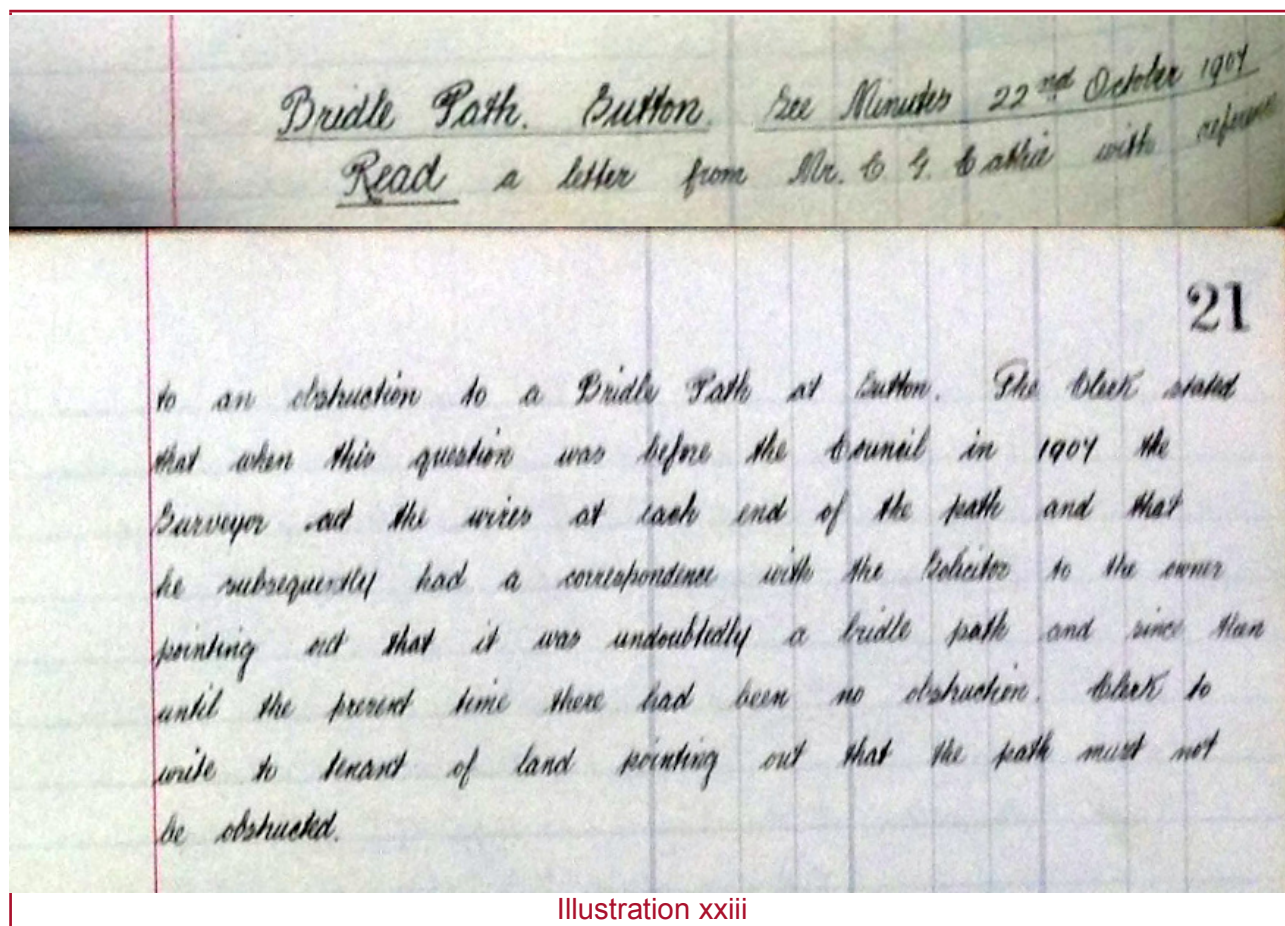 Bridle Path. Sutton. See Minutes 22nd October 1907
Read a letter from Mr. C. G. Cattie with reference
21
to an obstruction to a Bridle Path at Sutton. The Clerk stated
that when this question was before the Council in 1907 the
Surveyor cut the wires at each end of the path and that
he subsequently had a correspondence with the Solicitor to the owner
pointing out that it was undoubtedly a bridle path and since then
until the present time there had been no obstruction. Clerk to
write to tenant of land pointing out that the path must not
be obstructed.
Illustration xxiii